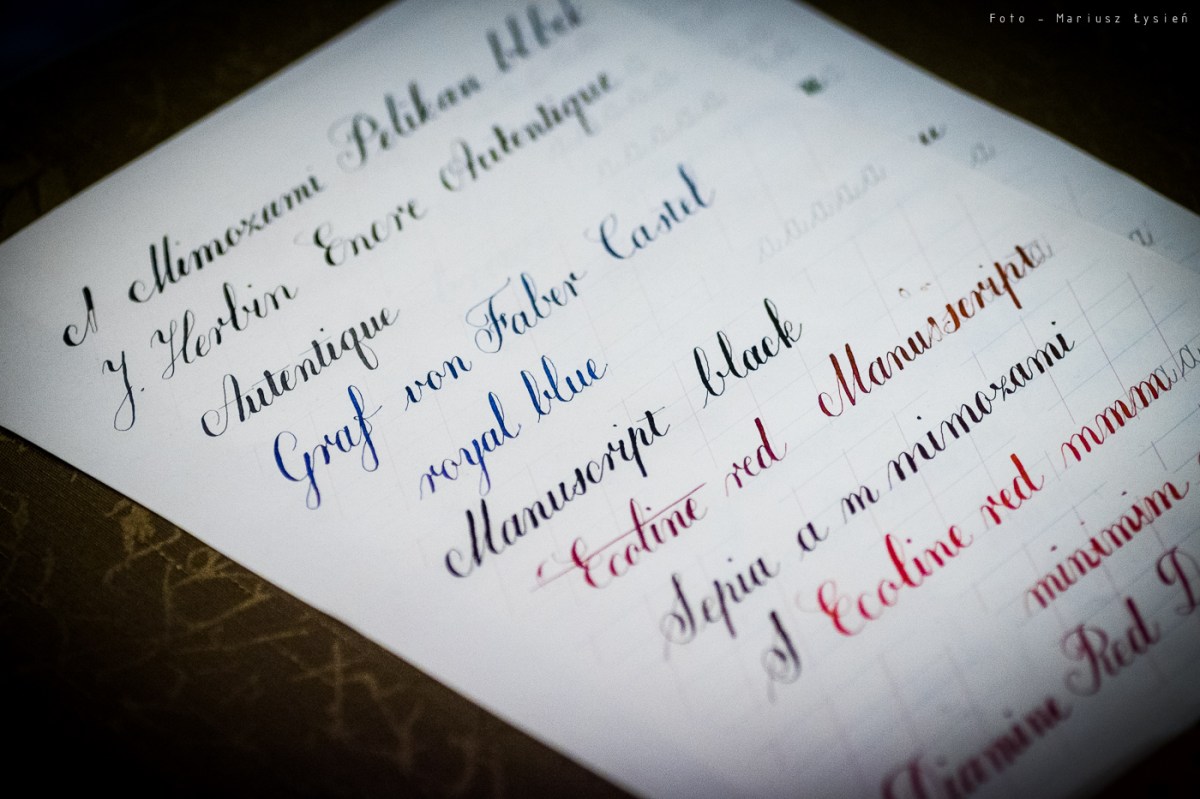 Foto - Mariusz Łysień
A Mimozami Pelikan
J. Herbin Encre Autentique
Autentique
Graf von Faber Castel
royal blue
Manuscript black
Ecoline red Manusscripta
Sepia a m mimozami
S Ecoline red mmmm
minimim
Diamine Red D